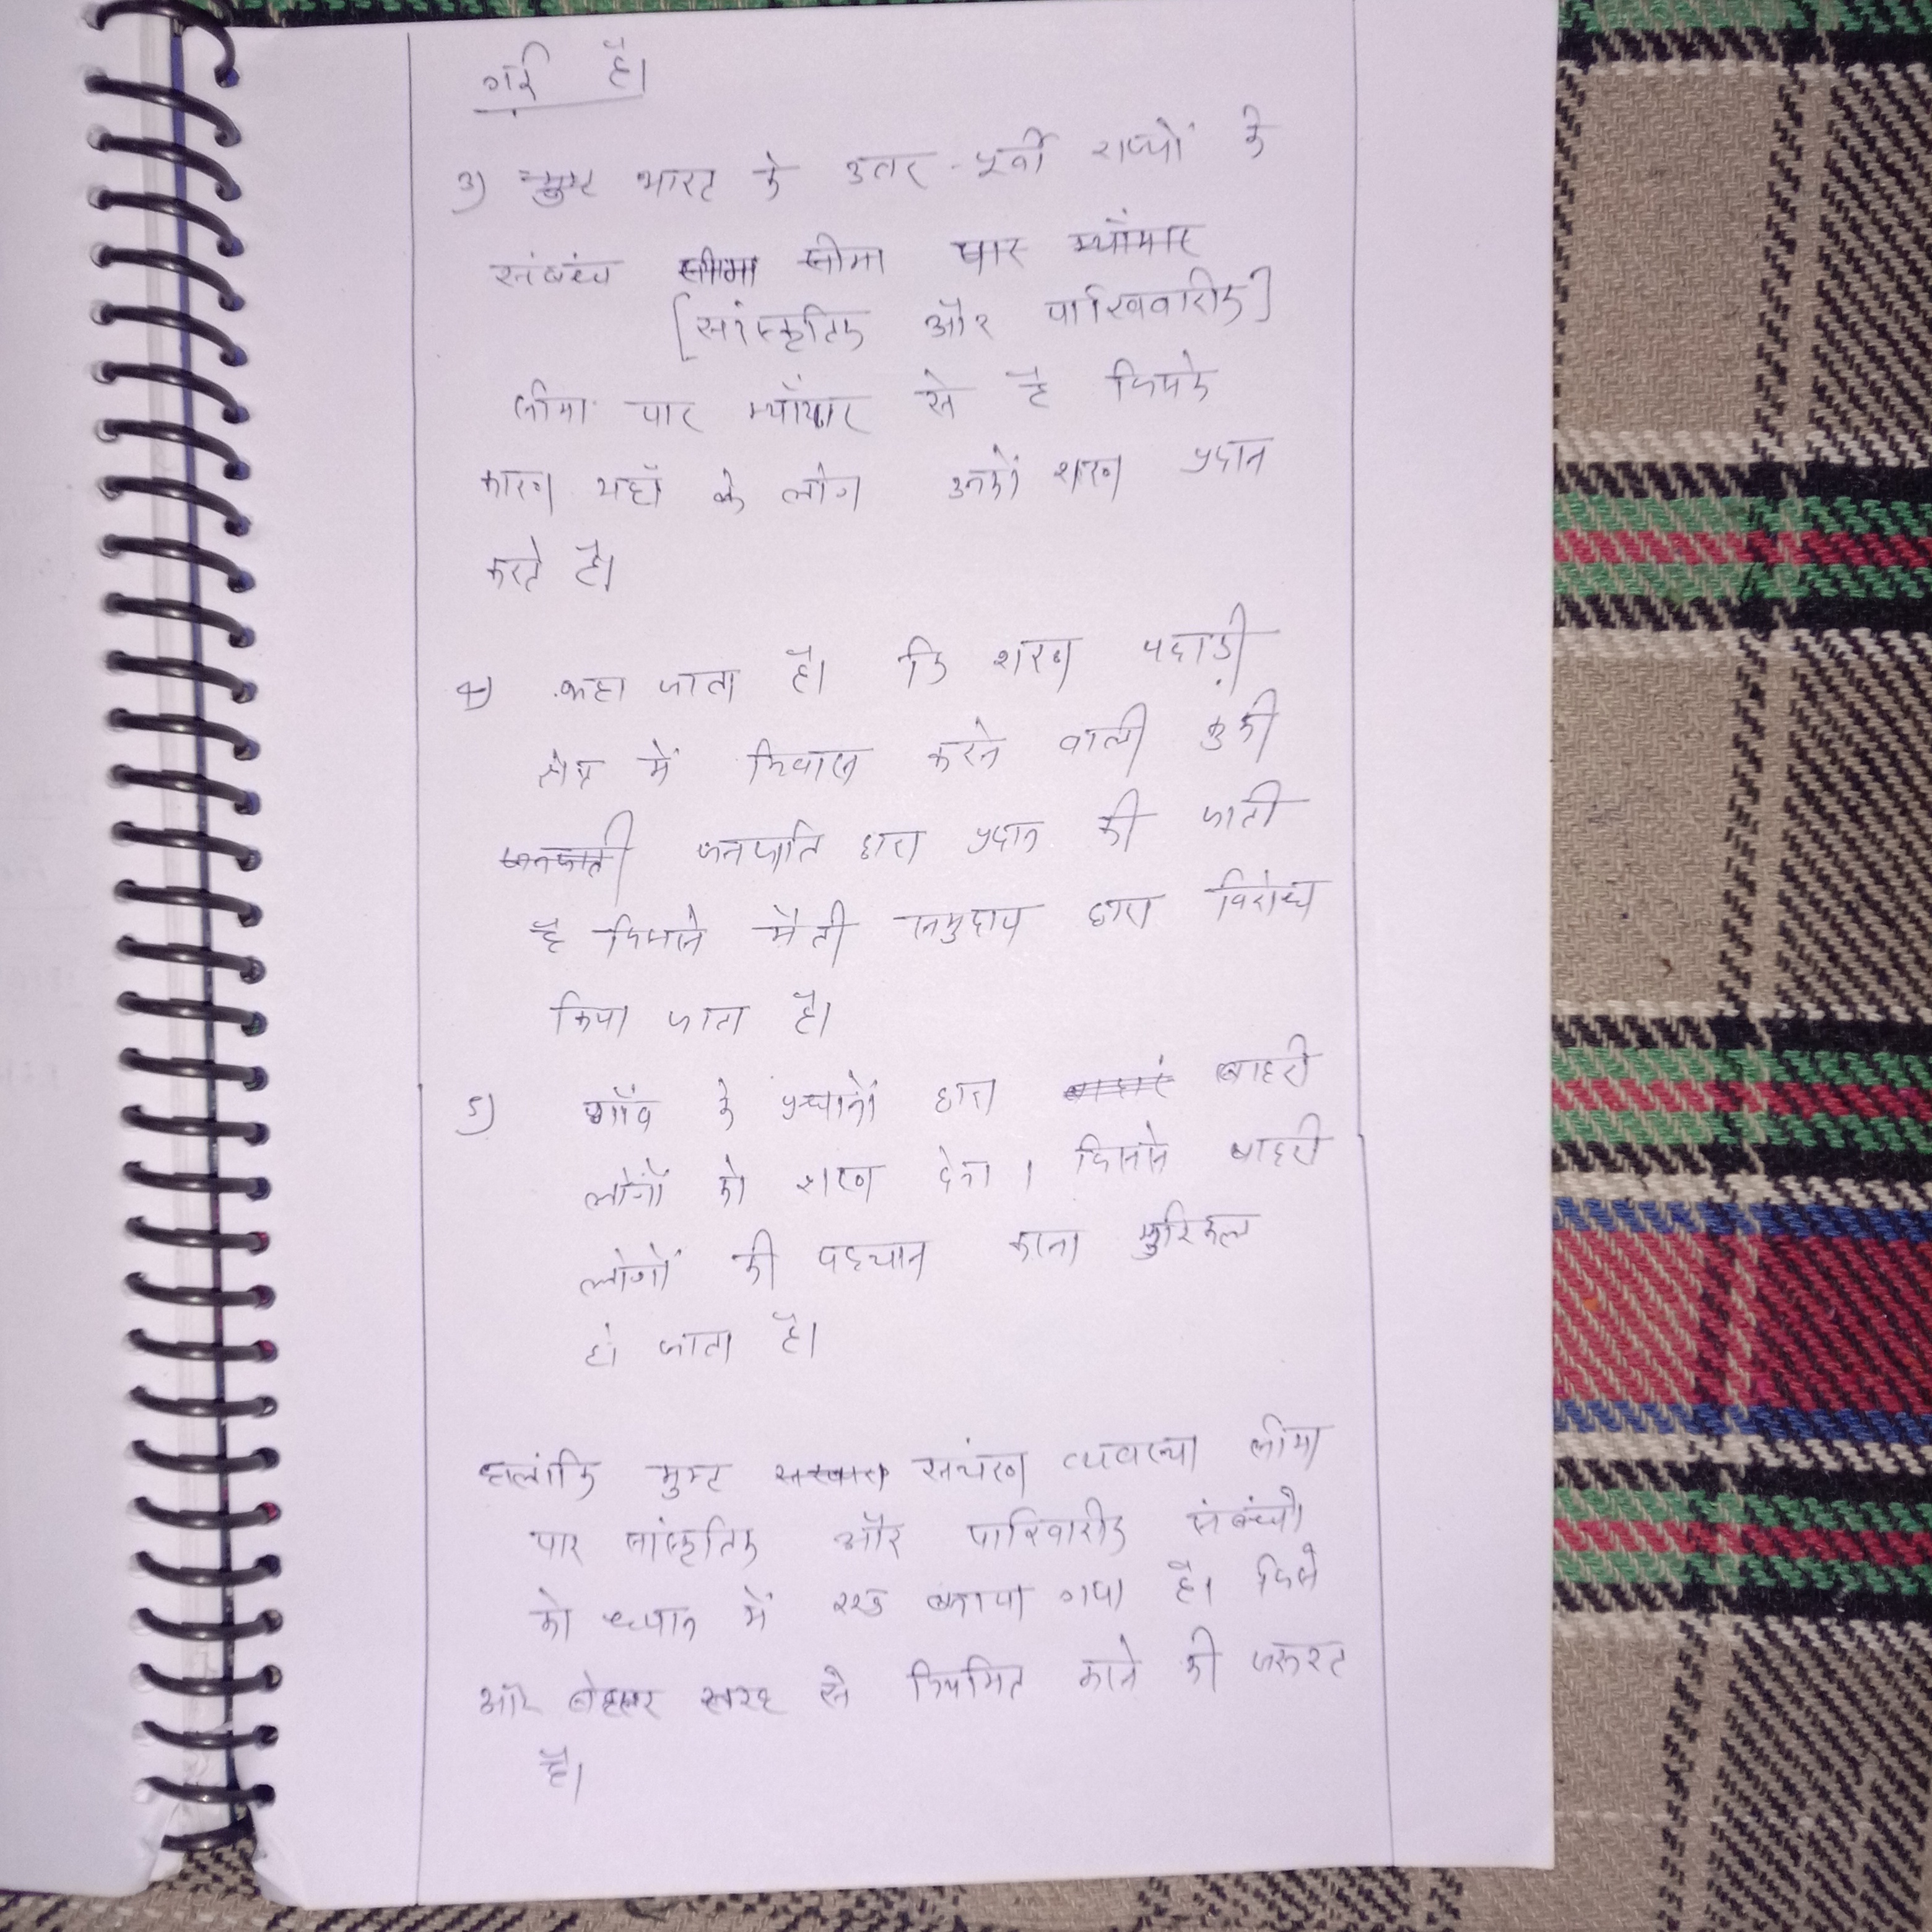 गई है।
3) भारत के उतर-पूर्वी राज्यों के
संबंध सीमा सीमा पार म्याँमार
[सांस्कृतिक और पारिववारीक]
सीमा पार म्याँमार से है जिसके
कारण यहाँ के लोग उनको शरण प्रदान
करते है।
4) कहा जाता है। कि शरण पहाड़ी
क्षेत्र में निवास करने वाली कुकी
जनजाती जनजाति द्वारा प्रदान की जाती
है जिसने मैती समुदाय द्वारा विरोध
किया जाता है।
5) गाँव के प्रधानों द्वारा बाहरी
लोगों को शरण देना। जिससे बाहरी
लोगों की पहचान करना मुश्किल
हो जाता है।
हालांकि मुक्त संचरण व्यवस्था सीमा
पार सांस्कृतिक और पारिवारीक संबंधो
को ध्यान में रख बनाया गया है। जिसे
और बेहतर तरह से नियमित करने की जरूरत
है।